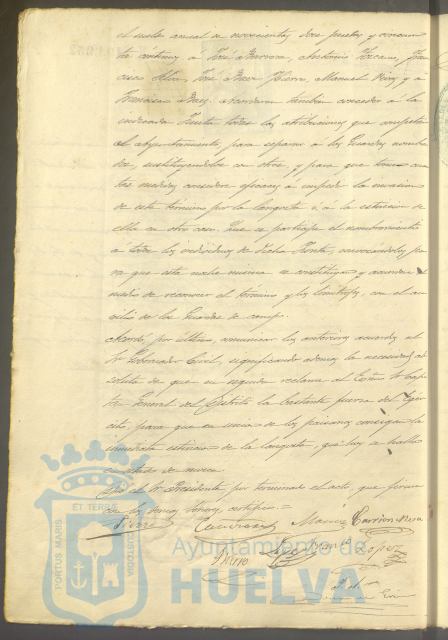 el sueldo anual de novecientas doce pesetas y cincuenta
centimos á José Barroso, Antonio
José Baez Hierro, Manuel y á
Francisco Baez. Acordaron tambien conceder á la
indicada Junta todas las atribuciones que competen
al Ayuntamiento, para separar á los Guardas nombrados,
sustituyendolos con otros, y para que tome cuantas
medidas considere eficaces á impedir la invasion
de este término por la langosta ó á la estincion de
ella en otro caso. Que se participe el nombramiento
á todos los individuos de dicha Junta, convocándoles para
que esta noche misma se constituya y acuerde el
medio de reconocer el término y los limítrofes, con el auxilio
de los Guardas de campo.
Acordó, por último, comunicar los anteriores acuerdos al
Sr Gobernador Civil, significando ademas la necesidad absoluta
de que en seguida reclame al Exmo Sr Capitan
General del Distrito la bastante fuerza del Ejército
para que en union de los paisanos consiga la
inmediata estincion de la langosta, que hoy se halla
en estado de mosca.
Dió el Sr Presidente por terminado el acto, que firma
con los demas Señores, certifico.=
Garcia Carrion Mesa
Lopez
PORTUS MARIS ET TERRAE CUSTODIA
Ayuntamiento de
HUELVA